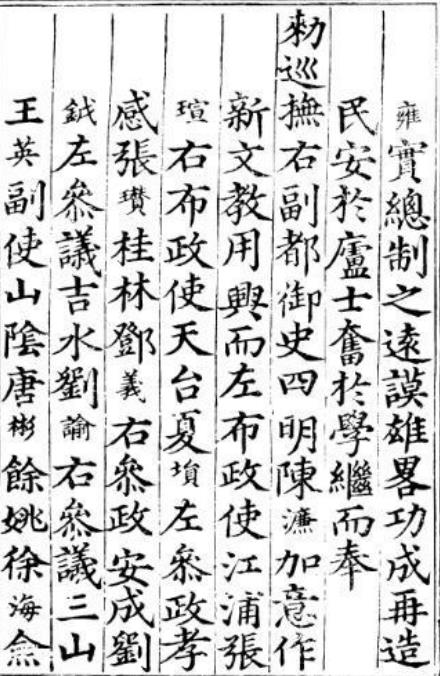 雍實總制之遠謨雄畧功成再造
民安於廬士奮於學繼而奉
勑巡撫右副都御史四明陳濂加意作
新文教用興而左布政使江浦張
瑄右布政使天台夏塤左叅政孝
感張瓚桂林鄧義右叅政安成劉
鉞左叅議吉水劉諭右叅議三山
王英副使山陰唐彬餘姚徐海僉